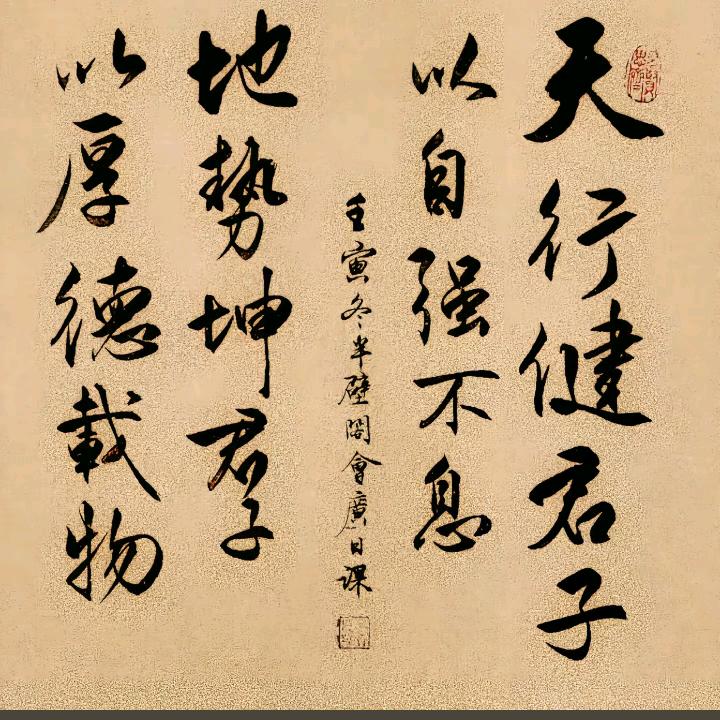 天行健君子
以自强不息
壬寅冬半壁閣會廣日課
地勢坤君子
以厚德載物